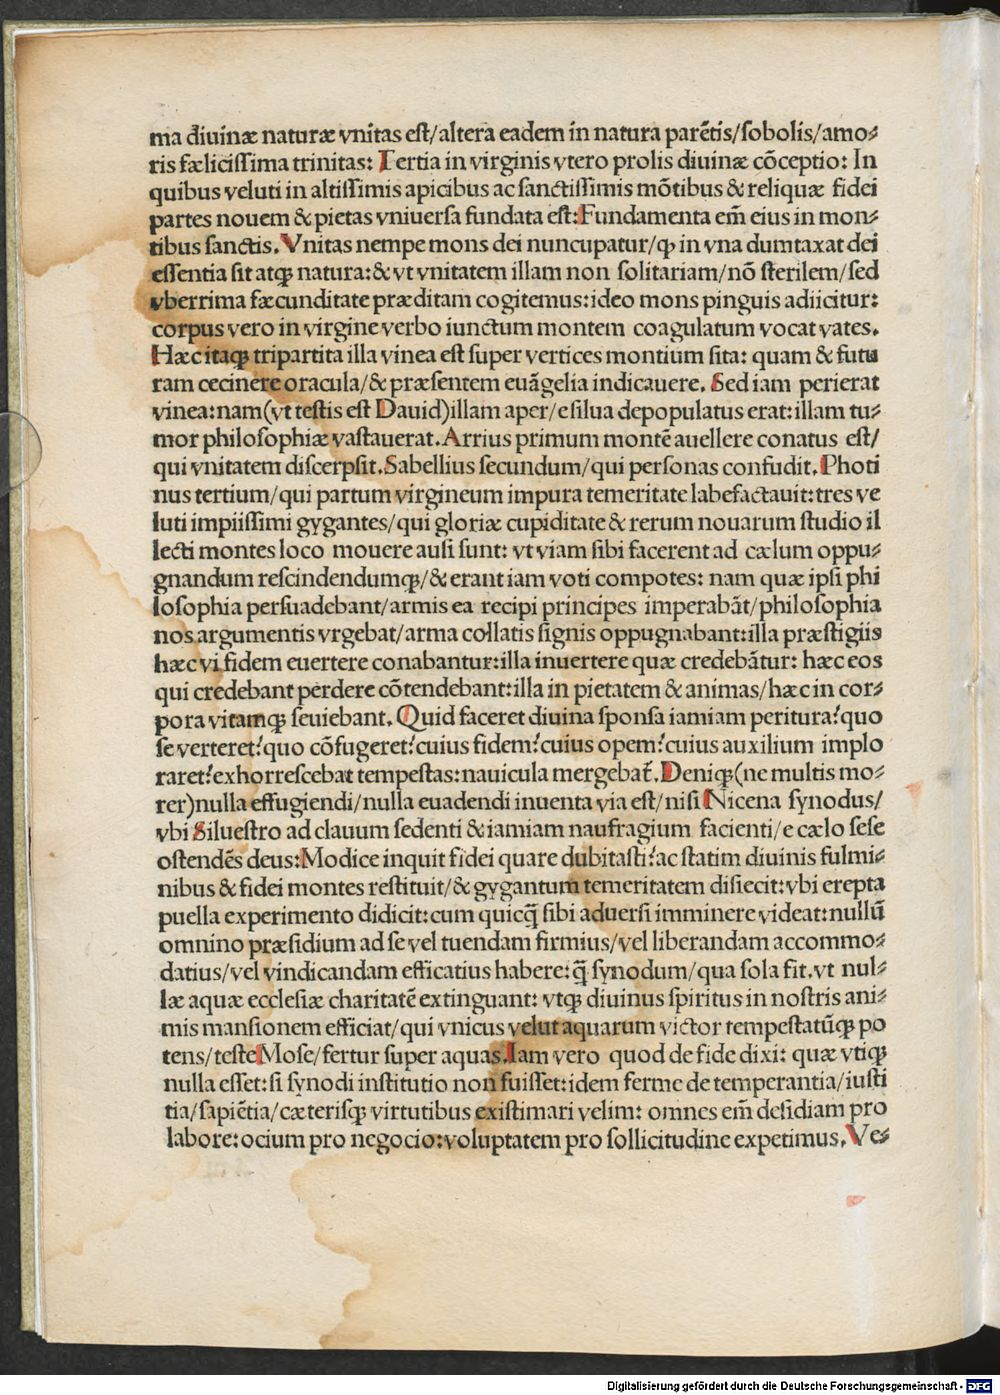 ma diuinæ naturæ vnitas est/altera eadem in natura parẽtis/sobolis/amo⸗
ris fælicissima trinitas: Tertia in virginis vtero prolis diuinæ cõceptio: In
quibus veluti in altissimis apicibus ac sanctissimis mõtibus & reliquæ fidei
partes nouem & pietas vniuersa fundata est:Fundamenta em̃ eius in mon⸗
tibus sanctis. Vnitas nempe mons dei nuncupatur/ꝙ in vna dumtaxat dei
essentia sit atqꝫ natura:& vt vnitatem illam non solitariam/nõ sterilem/sed
vberrima fæcunditate præditam cogitemus:ideo mons pinguis adiicitur:
corpus vero in virgine verbo iunctum montem coagulatum vocat vates.
Hæc itaqꝫ tripartita illa vinea est super vertices montium sita: quam & futu
ram cecinere oracula/& præsentem euãgelia indicauere. Sed iam perierat
vinea:nam(vt testis est Dauid)illam aper/e silua depopulatus erat:illam tu⸗
mor philosophiæ vastauerat.Arrius primum montẽ auellere conatus est/
qui vnitatem discerpsit.Sabellius secundum/qui personas confudit.Photi
nus tertium/qui partum virgineum impura temeritate labefactauit:tres ve
luti impiissimi gygantes/qui gloriæ cupiditate & rerum nouarum studio il
lecti montes loco mouere ausi sunt: vt viam sibi facerent ad cælum oppu⸗
gnandum rescindendumqꝫ/& erant iam voti compotes: nam quæ ipsi phi
losophia persuadebant/armis ea recipi principes imperabãt/philosophia
nos argumentis vrgebat/arma collatis signis oppugnabant:illa præstigiis
hæc vi fidem euertere conabantur:illa inuertere quæ credebãtur: hæc eos
qui credebant perdere cõtendebant:illa in pietatem & animas/hæc in cor⸗
pora vitamqꝫ seuiebant. Quid faceret diuina sponsa iamiam peritura?quo
se verteret?quo cõfugeret?cuius fidem?cuius opem?cuius auxilium implo
raret?exhorrescebat tempestas:nauicula mergebat̃.Deniqꝫ(ne multis mo⸗
rer)nulla effugiendi/nulla euadendi inuenta via est/nisi Nicena synodus/
vbi Siluestro ad clauum sedenti & iamiam naufragium facienti/e cælo sese
ostendẽs deus:Modice inquit fidei quare dubitasti?ac statim diuinis fulmi⸗
nibus & fidei montes restituit/& gygantum temeritatem disiecit:vbi erepta
puella experimento didicit:cum quicq̃ sibi aduersi imminere videat:nullũ
omnino præsidium ad se vel tuendam firmius/vel liberandam accommo⸗
datius/vel vindicandam efficatius habere:q̃ synodum/qua sola fit.vt nul⸗
læ aquæ ecclesiæ charitatẽ extinguant: vtqꝫ diuinus spiritus in nostris ani⸗
mis mansionem efficiat/qui vnicus velut aquarum victor tempestatũqꝫ po
tens/teste Mose/fertur super aquas.Iam vero quod de fide dixi: quæ vtiqꝫ
nulla esset:si synodi institutio non fuisset:idem ferme de temperantia/iusti
tia/sapiẽtia/cæterisqꝫ virtutibus existimari velim: omnes em̃ desidiam pro
labore:ocium pro negocio:voluptatem pro sollicitudine expetimus.Ve⸗
Digitalisierung gefördert durch die Deutsche Forschungsgemeinschaft - DFG